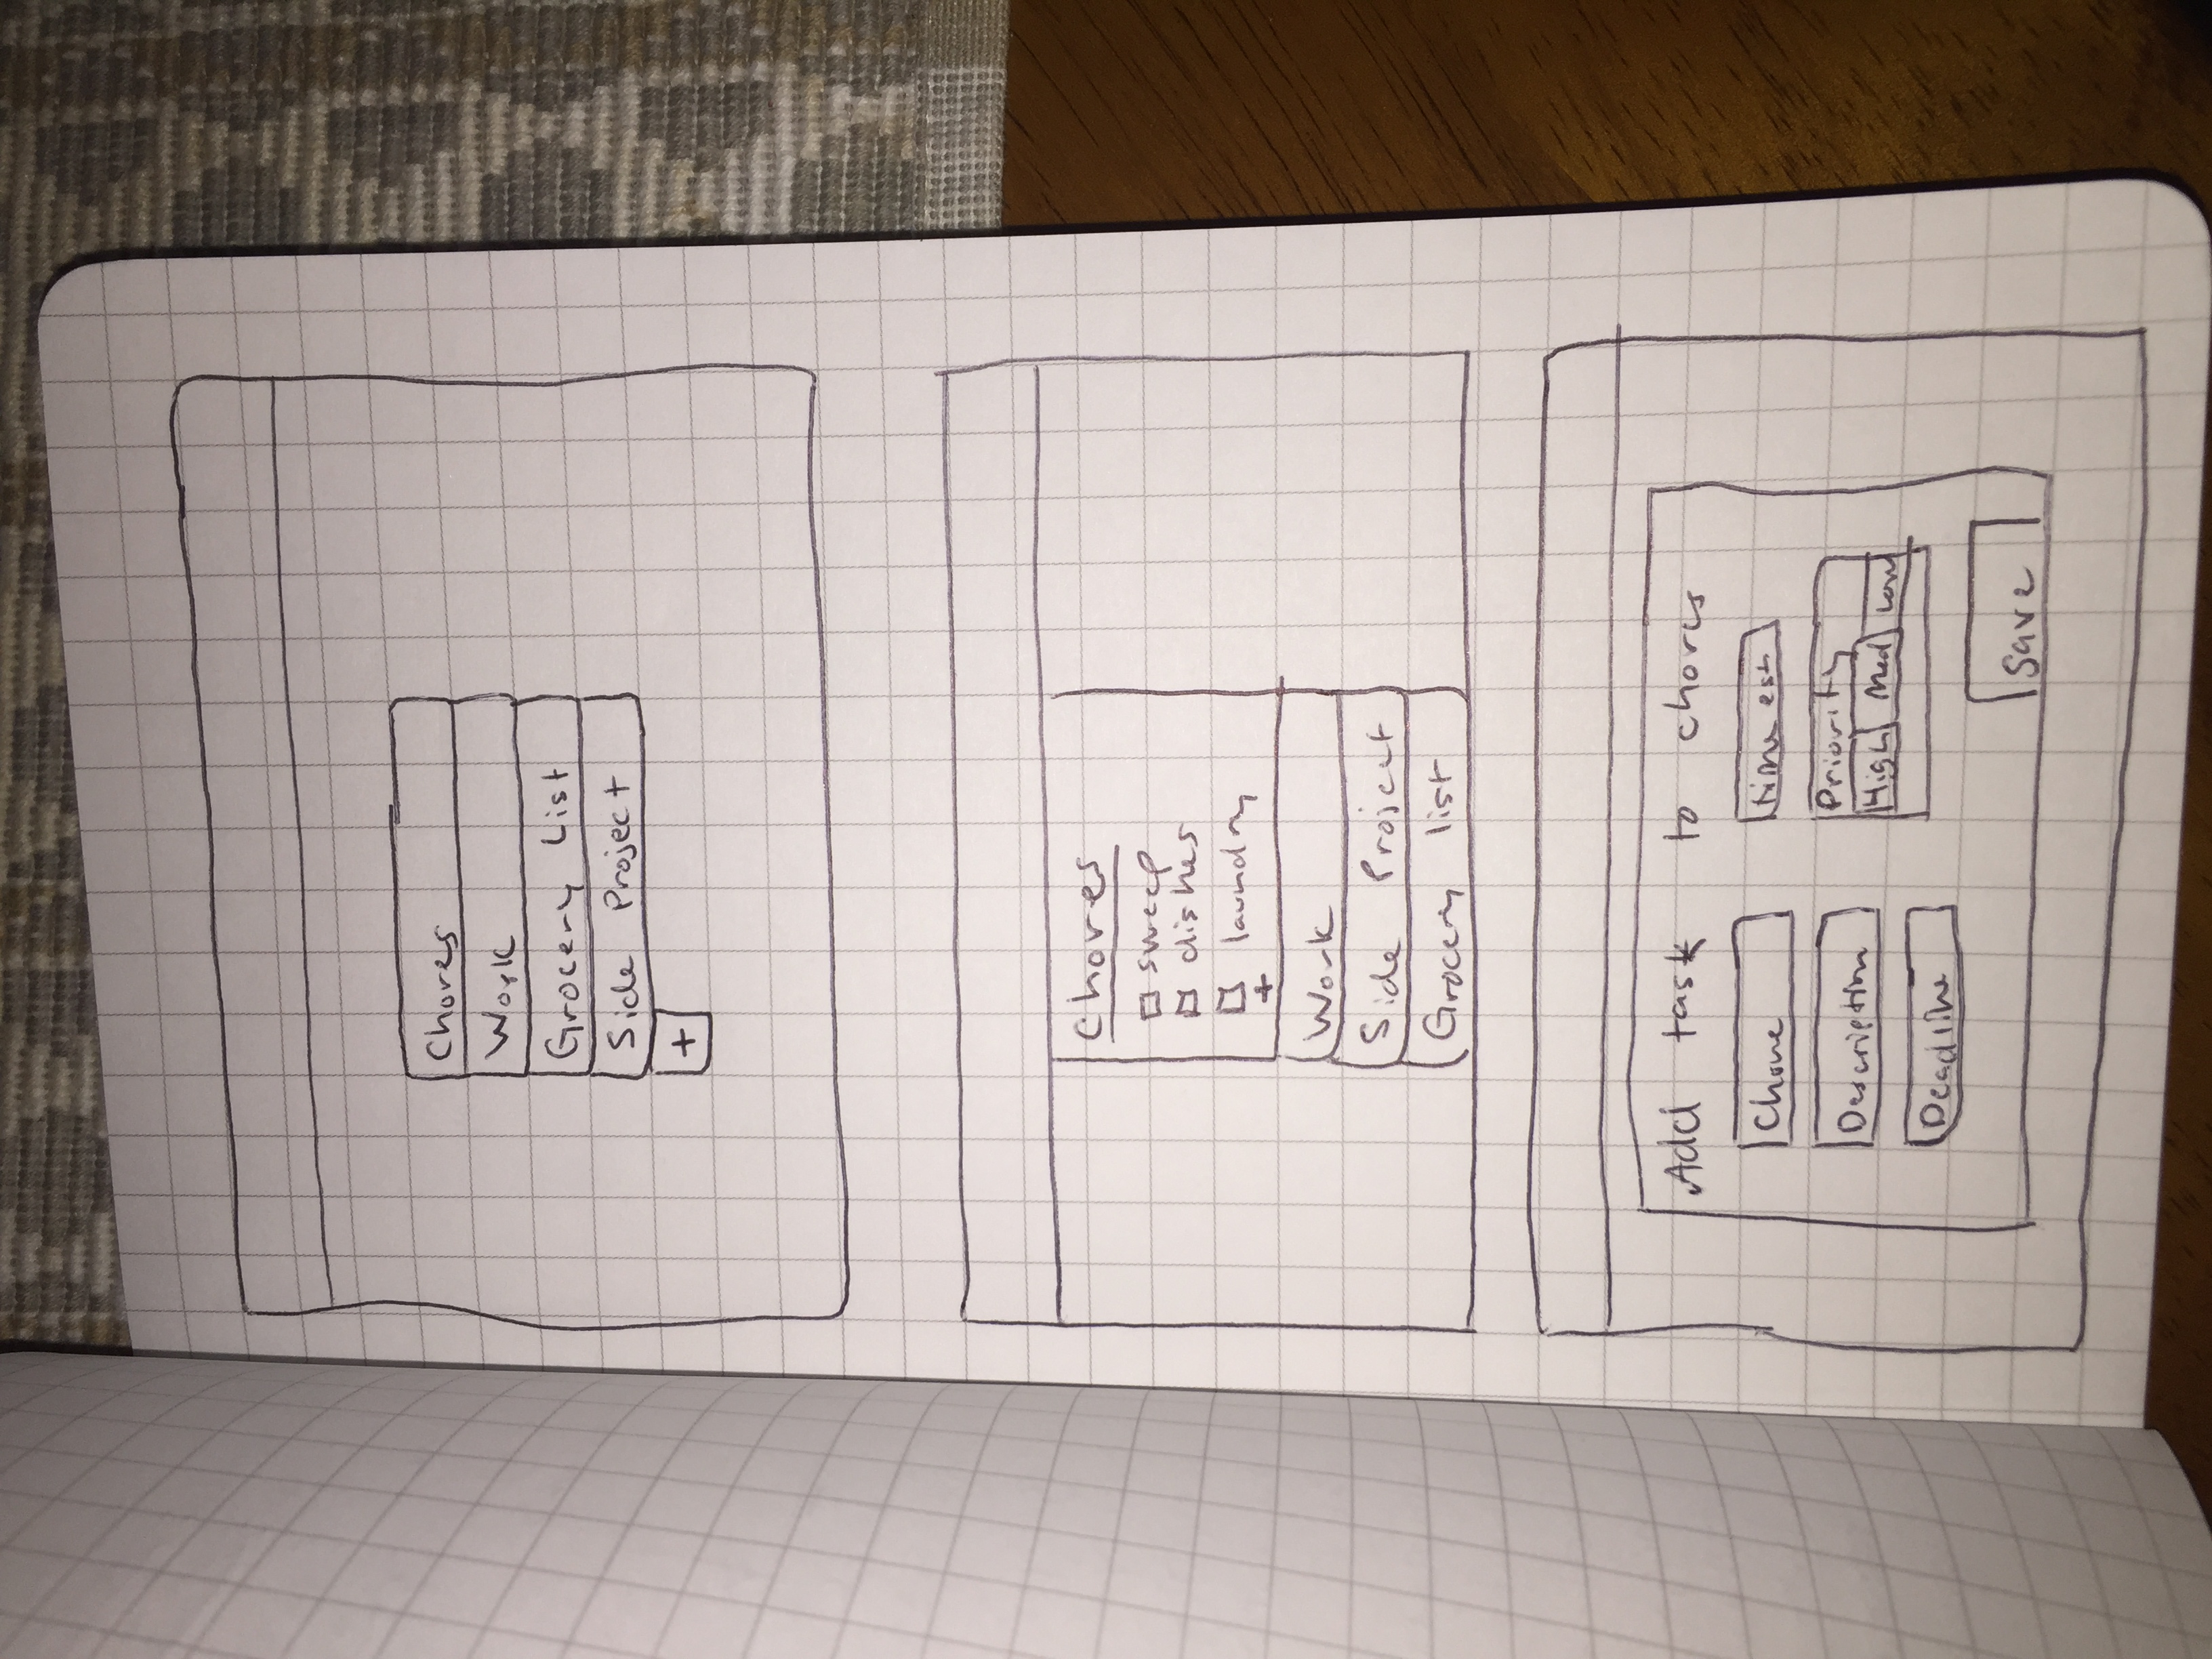 Chores
Work
Grocery List
Side Project
+
Chores
sweep
dishes
laundry
+
Work
Side Project
Grocery list
Add task to chores
Chore
time est
Description
Priority
High Med Low
Deadline
Save